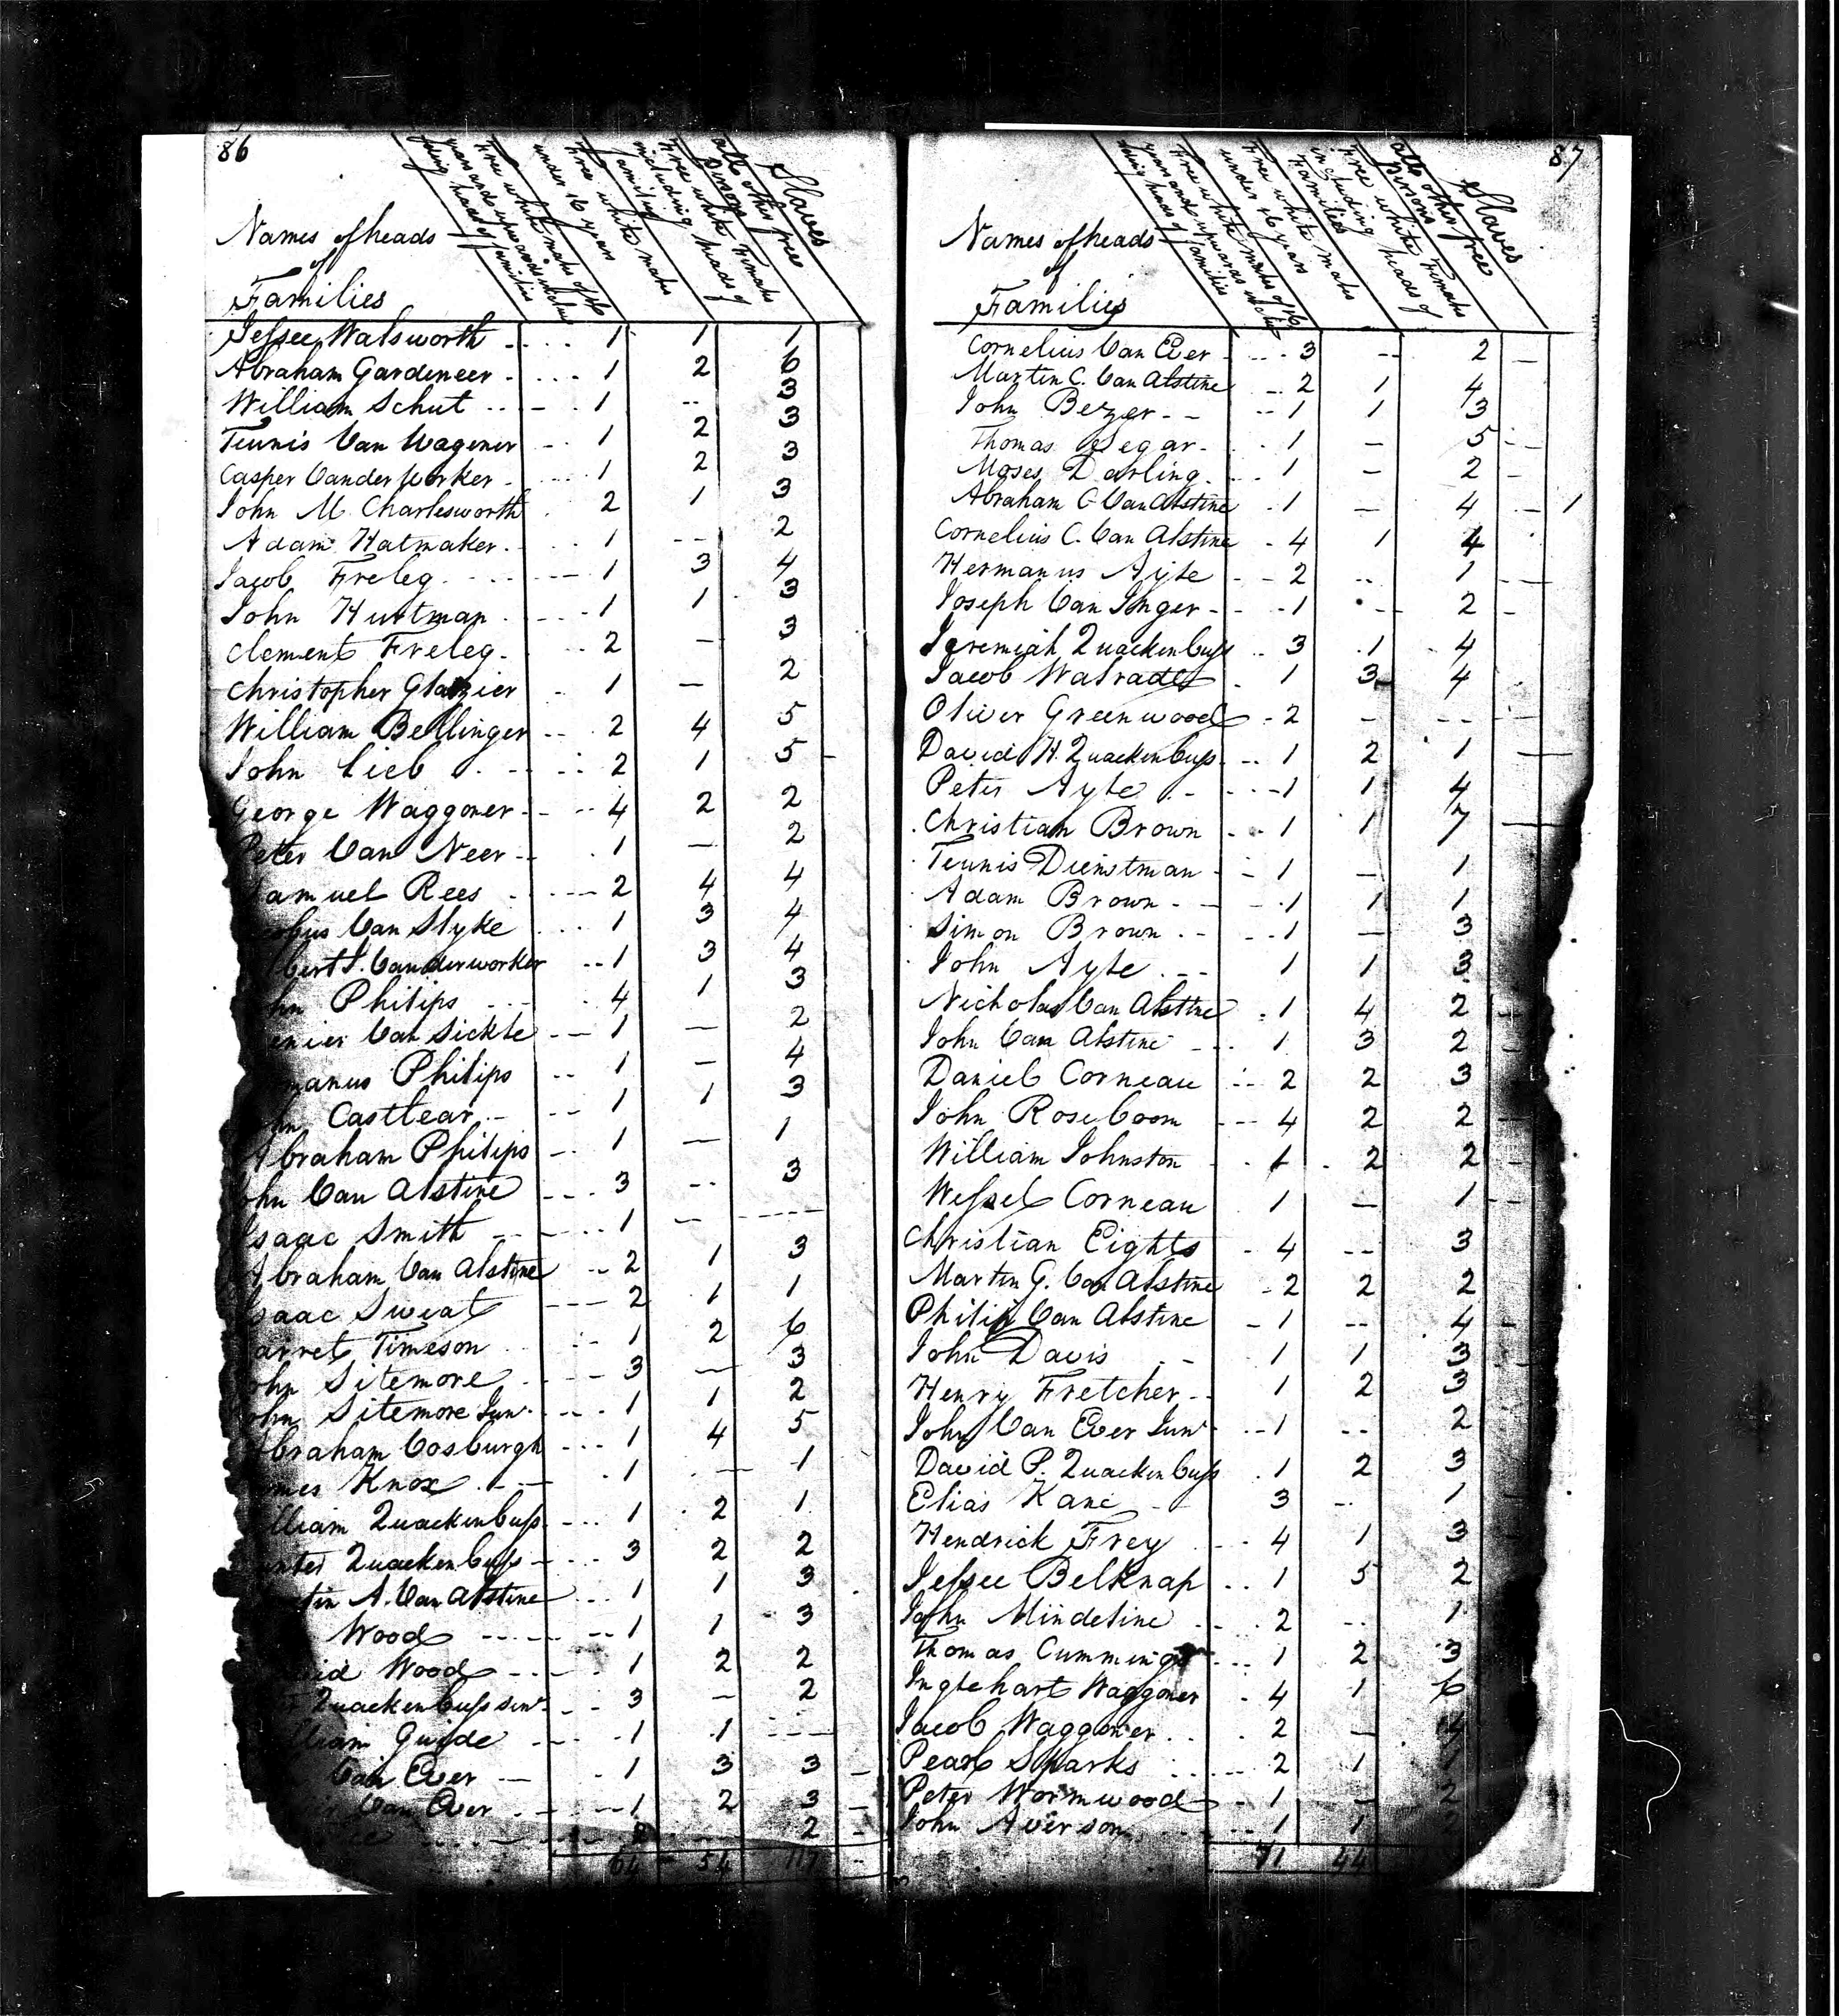 86
Names of heads
of
Families
Free white males of 16
years and upwards includ
being heads of families
Free white males
under 16 years
Free white Females
including heads of
families
all other free
Persons
Slaves
Jessee Walsworth 1 1 1
Abraham Gardeneer 1 2 6
William Schut 1 -- 3
Teunis Van Wagener 1 2 3
Casper Vanderworker 1 2 3
John M. Charlesworth 2 1 3
Adam Hatmaker 1 -- 2
Jacob Freleg 1 3 4
John Hurtman 1 1 3
Clement Freleg 2 - 3
Christopher Glazier 1 - 2
William Bellinger 2 4 5
John Lieb 2 1 5 -
George Waggoner 4 2 2
Peter Van Neer 1 - 2
amuel Rees 2 4 4
obus Van Slyke 1 3 4
bert J. Vanderworker 1 3 4
hn Philips 4 1 3
enier Van Sickle 1 - 2
manus Philips 1 - 4
hn Castlear 1 1 3
Abraham Philips 1 - 1
ohn Van Alstine 3 -- 3
Isaac Smith 1 - ----
Abraham Van Alstine 2 1 3
saac Sweat 2 1 1
arret Timeson 1 2 6
ohn Sitemore 3 - 3
ohn Sitemore Junr 1 1 2
braham Vosburgh 1 4 5
mes Knox 1 - 1
lliam Quackenbuss 1 2 1
unter Quackenbuss 3 2 2
tin A. Van Alstine 1 1 3
Wood 1 1 3
id Wood 1 2 2
Quackenbuss Senr 3 - 2
lliam Guide 1 1 ---
Van Ever 1 3 3 -
Van Ever 1 2 3 -
2 - 2 -
64 54 117 --
87
Names of heads
of
Families
Free white males of 16
years and upwards includ
being heads of families
Free white males
under 16 years
Free white Females
including heads of
Families
all other free
Persons
Slaves
Cornelius Van Ever 3 -- 2 -
Martin C. Van Alstine 2 1 4
John Bezer 1 1 3
Thomas Segar 1 - 5 -
Moses Darling 1 - 2 -
Abraham C Van Alstine 1 - 4 - 1
Cornelius C. Van Alstine 4 1 4
Hermanus Ayle 2 -- 1 -
Joseph Van Inger 1 -- 2 -
Jeremiah Quackenbuss 3 1 4
Jacob Walrade 1 3 4
Oliver Greenwood 2 - -- -
David H. Quackenbuss 1 2 1 -
Peter Ayle 1 1 4
Christian Brown 1 1 7 -
Teunis Dienstman 1 - 1
Adam Brown 1 1 1
Simon Brown 1 - 3
John Ayle 1 1 3
Nicholas Van Alstine 1 4 2 -
John Van Alstine 1 3 2 -
Daniel Corneau 2 2 3
John Roseboom 4 2 2 -
William Johnston 1 2 2 -
Wessel Corneau 1 - 1 -
Christian Eights 4 -- 3
Martin G. Van Alstine 2 2 2
Philip Van Alstine 1 -- 4 -
John Davis 1 1 3
Henry Fretcher 1 2 3
John Van Ever Junr 1 -- 2
David P. Quackenbuss 1 2 3
Elias Kane 3 -- 1
Hendrick Frey 4 1 3
Jessee Belknap 1 5 2
John Mindeline 2 -- 1
Thomas Cummings 1 2 3
Inglehart Waggoner 4 1 6
Jacob Waggoner 2 - 4
Pearl Sparks 2 1 1
Peter Wormwood 1 - 2
John Averson 1 1 2
71 44